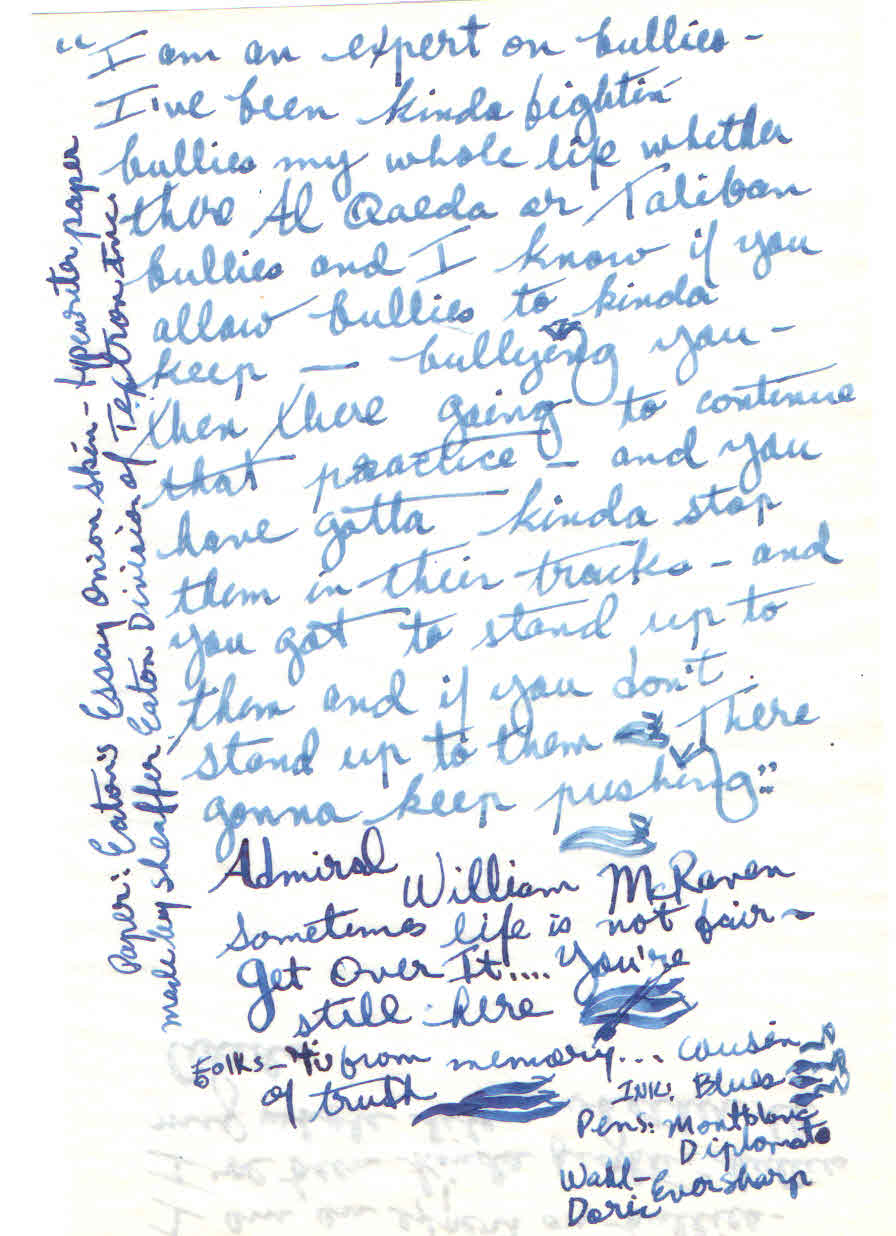 "I am an expert on bullies -
I've been kinda fightin'
bullies my whole life whether
there Al Qaeda or Taliban
bullies and I know if you
allow bullies to kinda
keep - bullying you -
then there going to continue
that practice - and you
have gotta kinda stop
them in their tracks - and
you got to stand up to
them and if you don't
stand up to them There
gonna keep pushing"
Admiral William McRaven
Sometimes life is not fair -
Get Over It.... You're
still here
Folks - from memory... cousin
of truth
INK: Blues
Pens: Montblanc
Diplomat
Wahl-Eversharp
Doric
Paper: Eaton's Essay Onion Skin - typewriter paper
made by Sheaffer Eaton Division of Textron Inc.